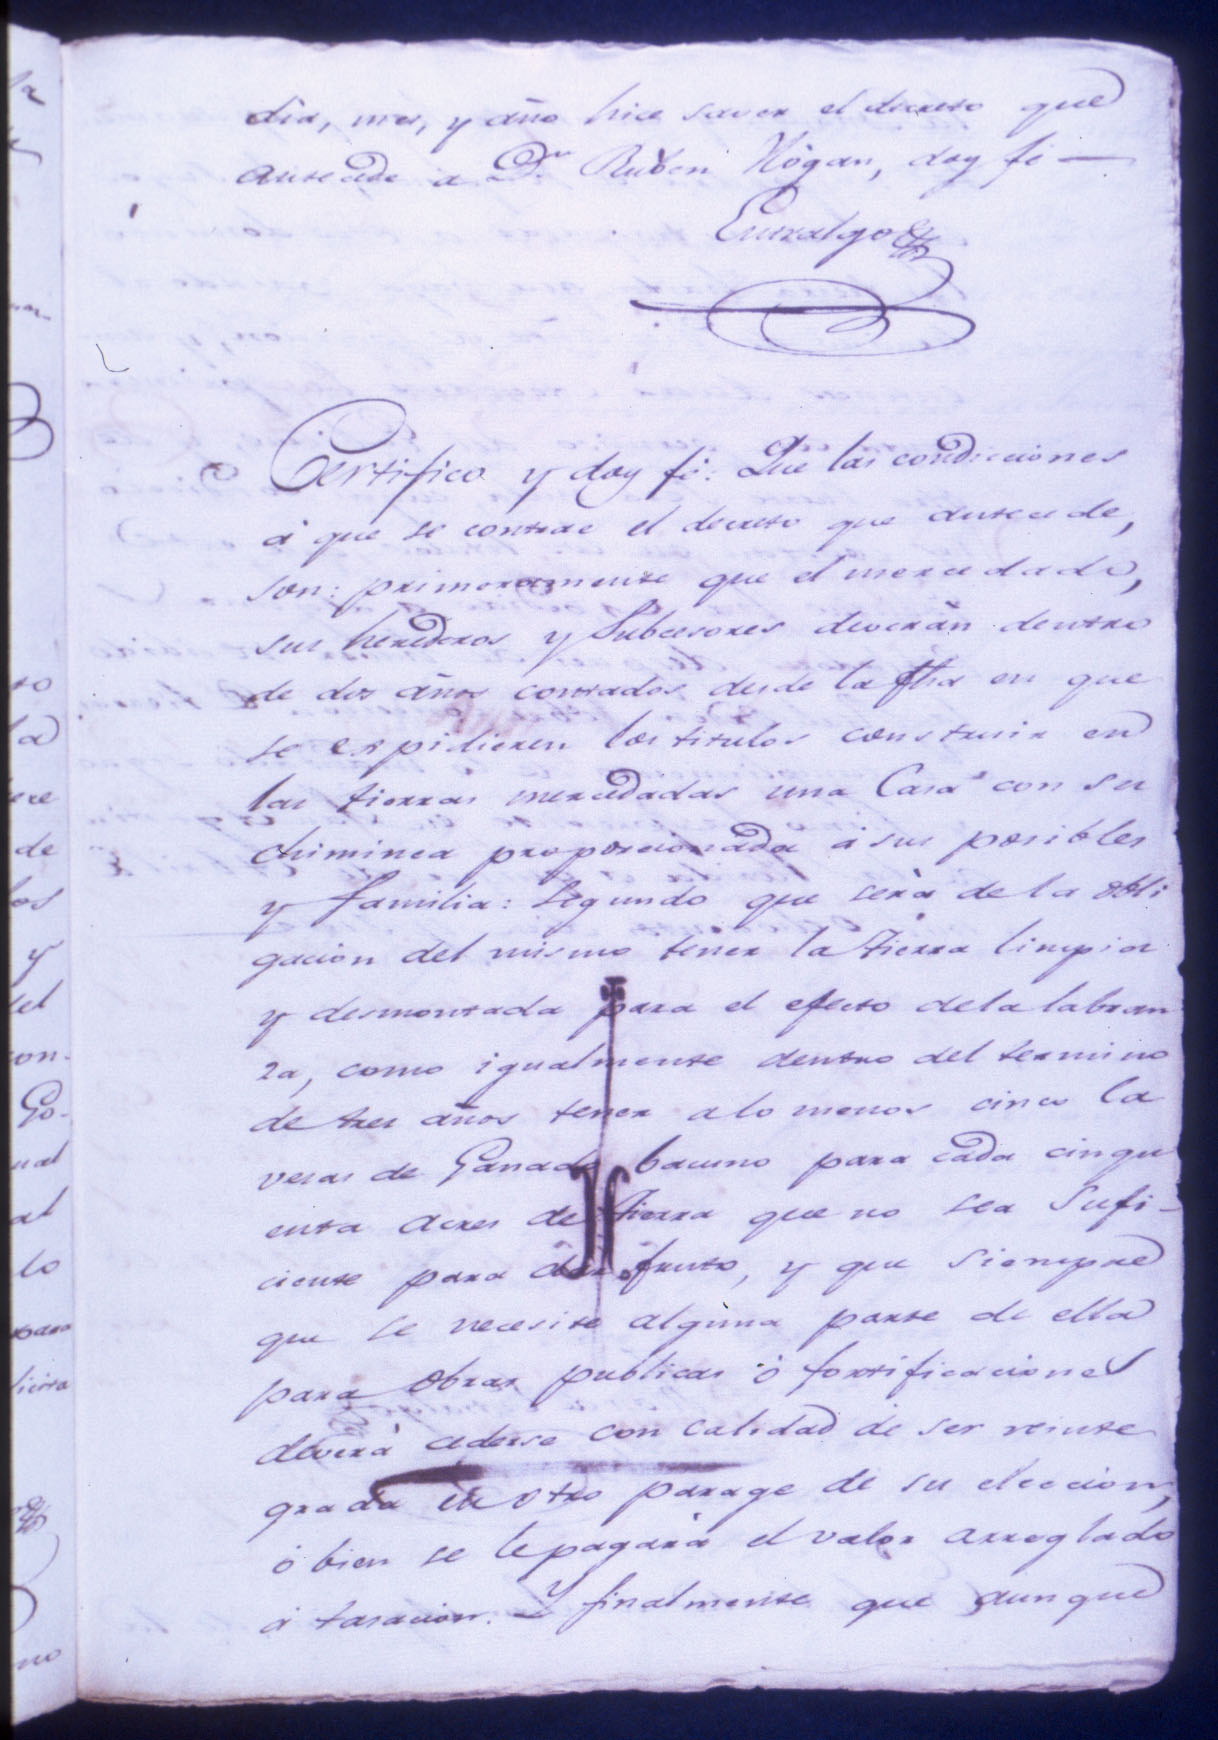 dia, mes, y año hice saver el decreto que
antecede a Dn. Rùben Hògan, doy fè —
Entralgo
Certifico y doy fè: Que las condicciones
à que se contrae el decreto que antecede,
son: primeramente que el mercedado,
sus herederos y Subcesores deveràn dentro
de dos años contados desde la fha en que
se expidieren los titulos construir en
las tierras mercedadas una Casa con su
chiminea proporcionada à sus posibles
y familia: Segundo que serà de la obli
gacion del mismo tener la tierra limpia
y desmontada para el efecto dela labran
za, como igualmente dentro del termino
de tres años tener alo menos cinco ca
vesas de Ganado bacuno para cada cinqu
enta acres de tierra que no sea Sufi-
ciente para dar fruto, y que siempre
que se necesite alguna parte de ella
para obras publicas ò fortificaciones
deverà cederse con calidad de ser reinte
grada en otro parage de su eleccion,
ò bien se le pagarà el valor arreglado
à tasacion. Y finalmente que aunque